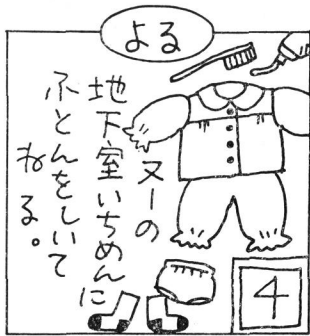 よる
ヌーの
地下室いちめんに
ふとんをしいて
ねる。
4